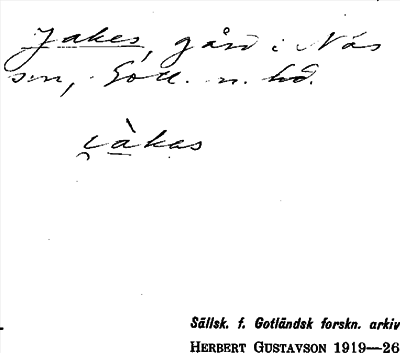 Jakes, gård i Näs
sn, Gotl. n. hd.
i̯àkas
Sällsk. f. Gotländsk forskn. arkiv
HERBERT GUSTAVSON 1919—26